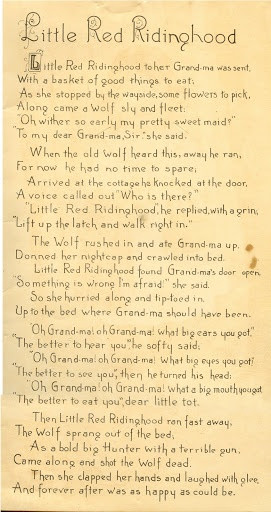 Little Red Ridinghood
Little Red Ridinghood to her Grand-ma was sent,
With a basket of good things to eat;
As she stopped by the wayside, some flowers to pick,
Along came a Wolf sly and fleet:
"Oh wither so early my pretty sweet maid?"
"To my dear Grand-ma, Sir." she said.
When the old Wolf heard this, away he ran,
For now he had no time to spare;
Arrived at the cottage he knocked at the door,
A voice called out "Who is there?"
"Little Red Ridinghood", he replied, with a grin,
"Lift up the latch, and walk right in."
The Wolf rushed in and ate Grand-ma up,
Donned her nightcap and crawled into bed.
Little Red Ridinghood found Grand-ma's door open,
"Something is wrong I'm afraid." she said.
So she hurried along and tip-toed in,
Up to the bed where Grand-ma should have been.
"Oh Grand-ma! oh Grand-ma! What big ears you got."
"The better to hear you", he softly said:
"Oh Grand-ma! oh Grand-ma! What big eyes you got?
"The better to see you", then he turned his head;
"Oh Grand-ma! oh Grand-ma! what a big mouth you got,
"The better to eat you", dear little tot.
Then Little Red Ridinghood ran fast away,
The Wolf sprang out of the bed,
As a bold big Hunter with a terrible gun,
Came along and shot the Wolf dead.
Then she clapped her hands and laughed with glee,
And forever after was as happy as could be.